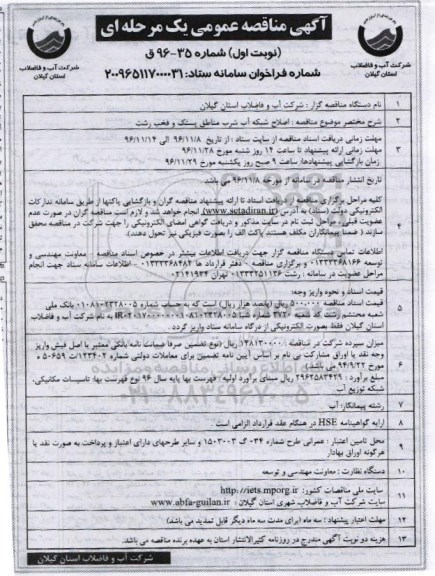 آگهی مناقصه عمومی یک مرحله ای
(نوبت اول) شماره ۳۵-۹۶ ق
شماره فراخوان سامانه ستاد: ۲۰۰۹۶۵۱۱۷۰۰۰۰۳۱
شرکت آب و فاضلاب
استان گیلان
شرکت آب و فاضلاب
استان گیلان
۱ نام دستگاه مناقصه گزار : شرکت آب و فاضلاب استان گیلان
۲ شرح مختصر موضوع مناقصه : اصلاح شبکه آب شرب مناطق پستک و فخب رشت
۳ مهلت زمانی دریافت اسناد مناقصه از سایت ستاد : از تاریخ ۹۶/۱۱/۸ الی ۹۶/۱۱/۱۴
مهلت زمانی ارائه پیشنهاد تا ساعت ۱۴ روز شنبه مورخ ۹۶/۱۱/۲۸
زمان بازگشایی پیشنهادها: ساعت ۹ صبح روز یکشنبه مورخ ۹۶/۱۱/۲۹
تاریخ انتشار مناقصه در سامانه از مورخه ۹۶/۱۱/۸ می باشد.
۴ کلیه مراحل برگزاری مناقصه از دریافت اسناد تا ارائه پیشنهاد مناقصه گران و بازگشایی پاکتها از طریق سامانه تدارکات
الکترونیکی دولت (ستاد) به آدرس (www.setadiran.ir) انجام خواهد شد و لازم است مناقصه گران در صورت عدم
عضویت قبلی، مراحل ثبت نام در سایت مذکور و دریافت گواهی امضای الکترونیکی را جهت شرکت در مناقصه محقق
سازند ( ضمنا پیمانکاران مکلف هستند پاکت الف را بصورت فیزیکی نیز تحویل دهند).
اطلاعات تماس دستگاه مناقصه گزار جهت دریافت اطلاعات بیشتر در خصوص اسناد مناقصه معاونت مهندسی و
توسعه ۰۱۳۳۳۳۶۸۱۶۶ و برگزاری مناقصه - دفتر قرارداد ها ۰۱۳۳۳۳۶۸۴۸۴ - اطلاعات سامانه ستاد جهت انجام
مراحل عضویت در سامانه : رشت ۰۱۳۳۳۲۵۱۱۳۶ تهران ۰۲۱۴۱۹۳۴
۵ قیمت اسناد و نحوه واریز وجه:
قیمت اسناد مناقصه ۵۰۰۰۰۰ ریال (پانصد هزار ریال) است که به حساب شماره ۰۱۰۸۱۰۲۳۲۸۰۰۵ بانک ملی
شعبه محتشم رشت کد شعبه ۳۷۲۰ شماره شبا به نام شرکت آب و فاضلاب
استان گیلان فقط بصورت الکترونیکی از درگاه سامانه ستاد واریز گردد .
۶ میزان سپرده شرکت در مناقصه : ۱۴۸۱۳۰۰۰۰ ریال (نوع تضمین صرفا ضمانت نامه بانکی معتبر یا اصل فیش واریز
وجه نقد یا اوراق مشارکت بی نام بر اساس آیین نامه تضمین برای معاملات دولتی شماره ۱۲۳۴۰۲/ت ۵۰۶۵۹ ه
مورخ ۹۴/۹/۲۲ می باشد).
مبلغ برآورد : ۲۹۶۲۵۸۳۴۲۹ ریال مبنای برآورد اولیه : فهرست بها پایه سال ۹۶ نوع فهرست بها: تاسیسات مکانیکی،
شبکه توزیع آب
۷ رشته پیمانکار: آب
۸ ارایه گواهینامه HSE در هنگام عقد قرارداد الزامی است .
۹ محل تامین اعتبار : عمرانی طرح شماره ۰۳۴- گ ۱۵۰۳۰۰۳ و سایر طرحهای دارای اعتبار و پرداخت به صورت نقد یا
هرگونه اوراق بهادار
۱۰ دستگاه نظارت : معاونت مهندسی و توسعه
۱۱ سایت ملی مناقصات کشور: http://iets.mporg.ir
سایت شرکت آب و فاضلاب شهری استان گیلان : www.abfa-guilan.ir
۱۲ مهلت اعتبار پیشنهاد : سه ماه (برای مدت سه ماه دیگر قابل تمدید می باشد)
۱۳ هزینه دو نوبت آگهی مندرج در روزنامه کثیرالانتشار استان به عهده برنده مناقصه می باشد.
شرکت آب و فاضلاب استان گیلان